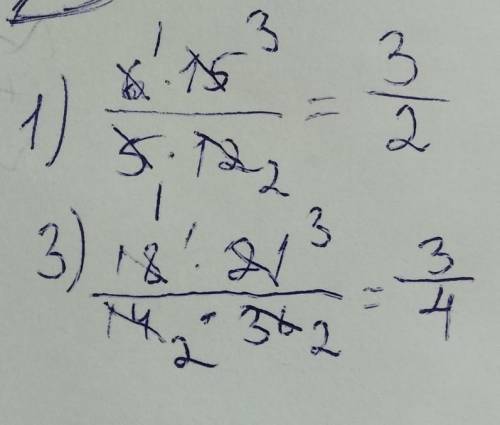 1) (6¹ · 15³) / (5₁ · 12₂) = 3/2
3) (18¹ · 21³) / (14₂ · 36₂) = 3/4